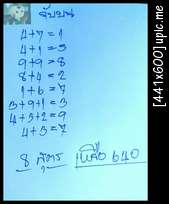 จับบน
4+7=1
4+1=5
9+9=8
8+4=2
1+6=7
3+9+1=3
4+3+2=9
4+3=7
8 สูตร เหลือ 640
[441x600]upic.me